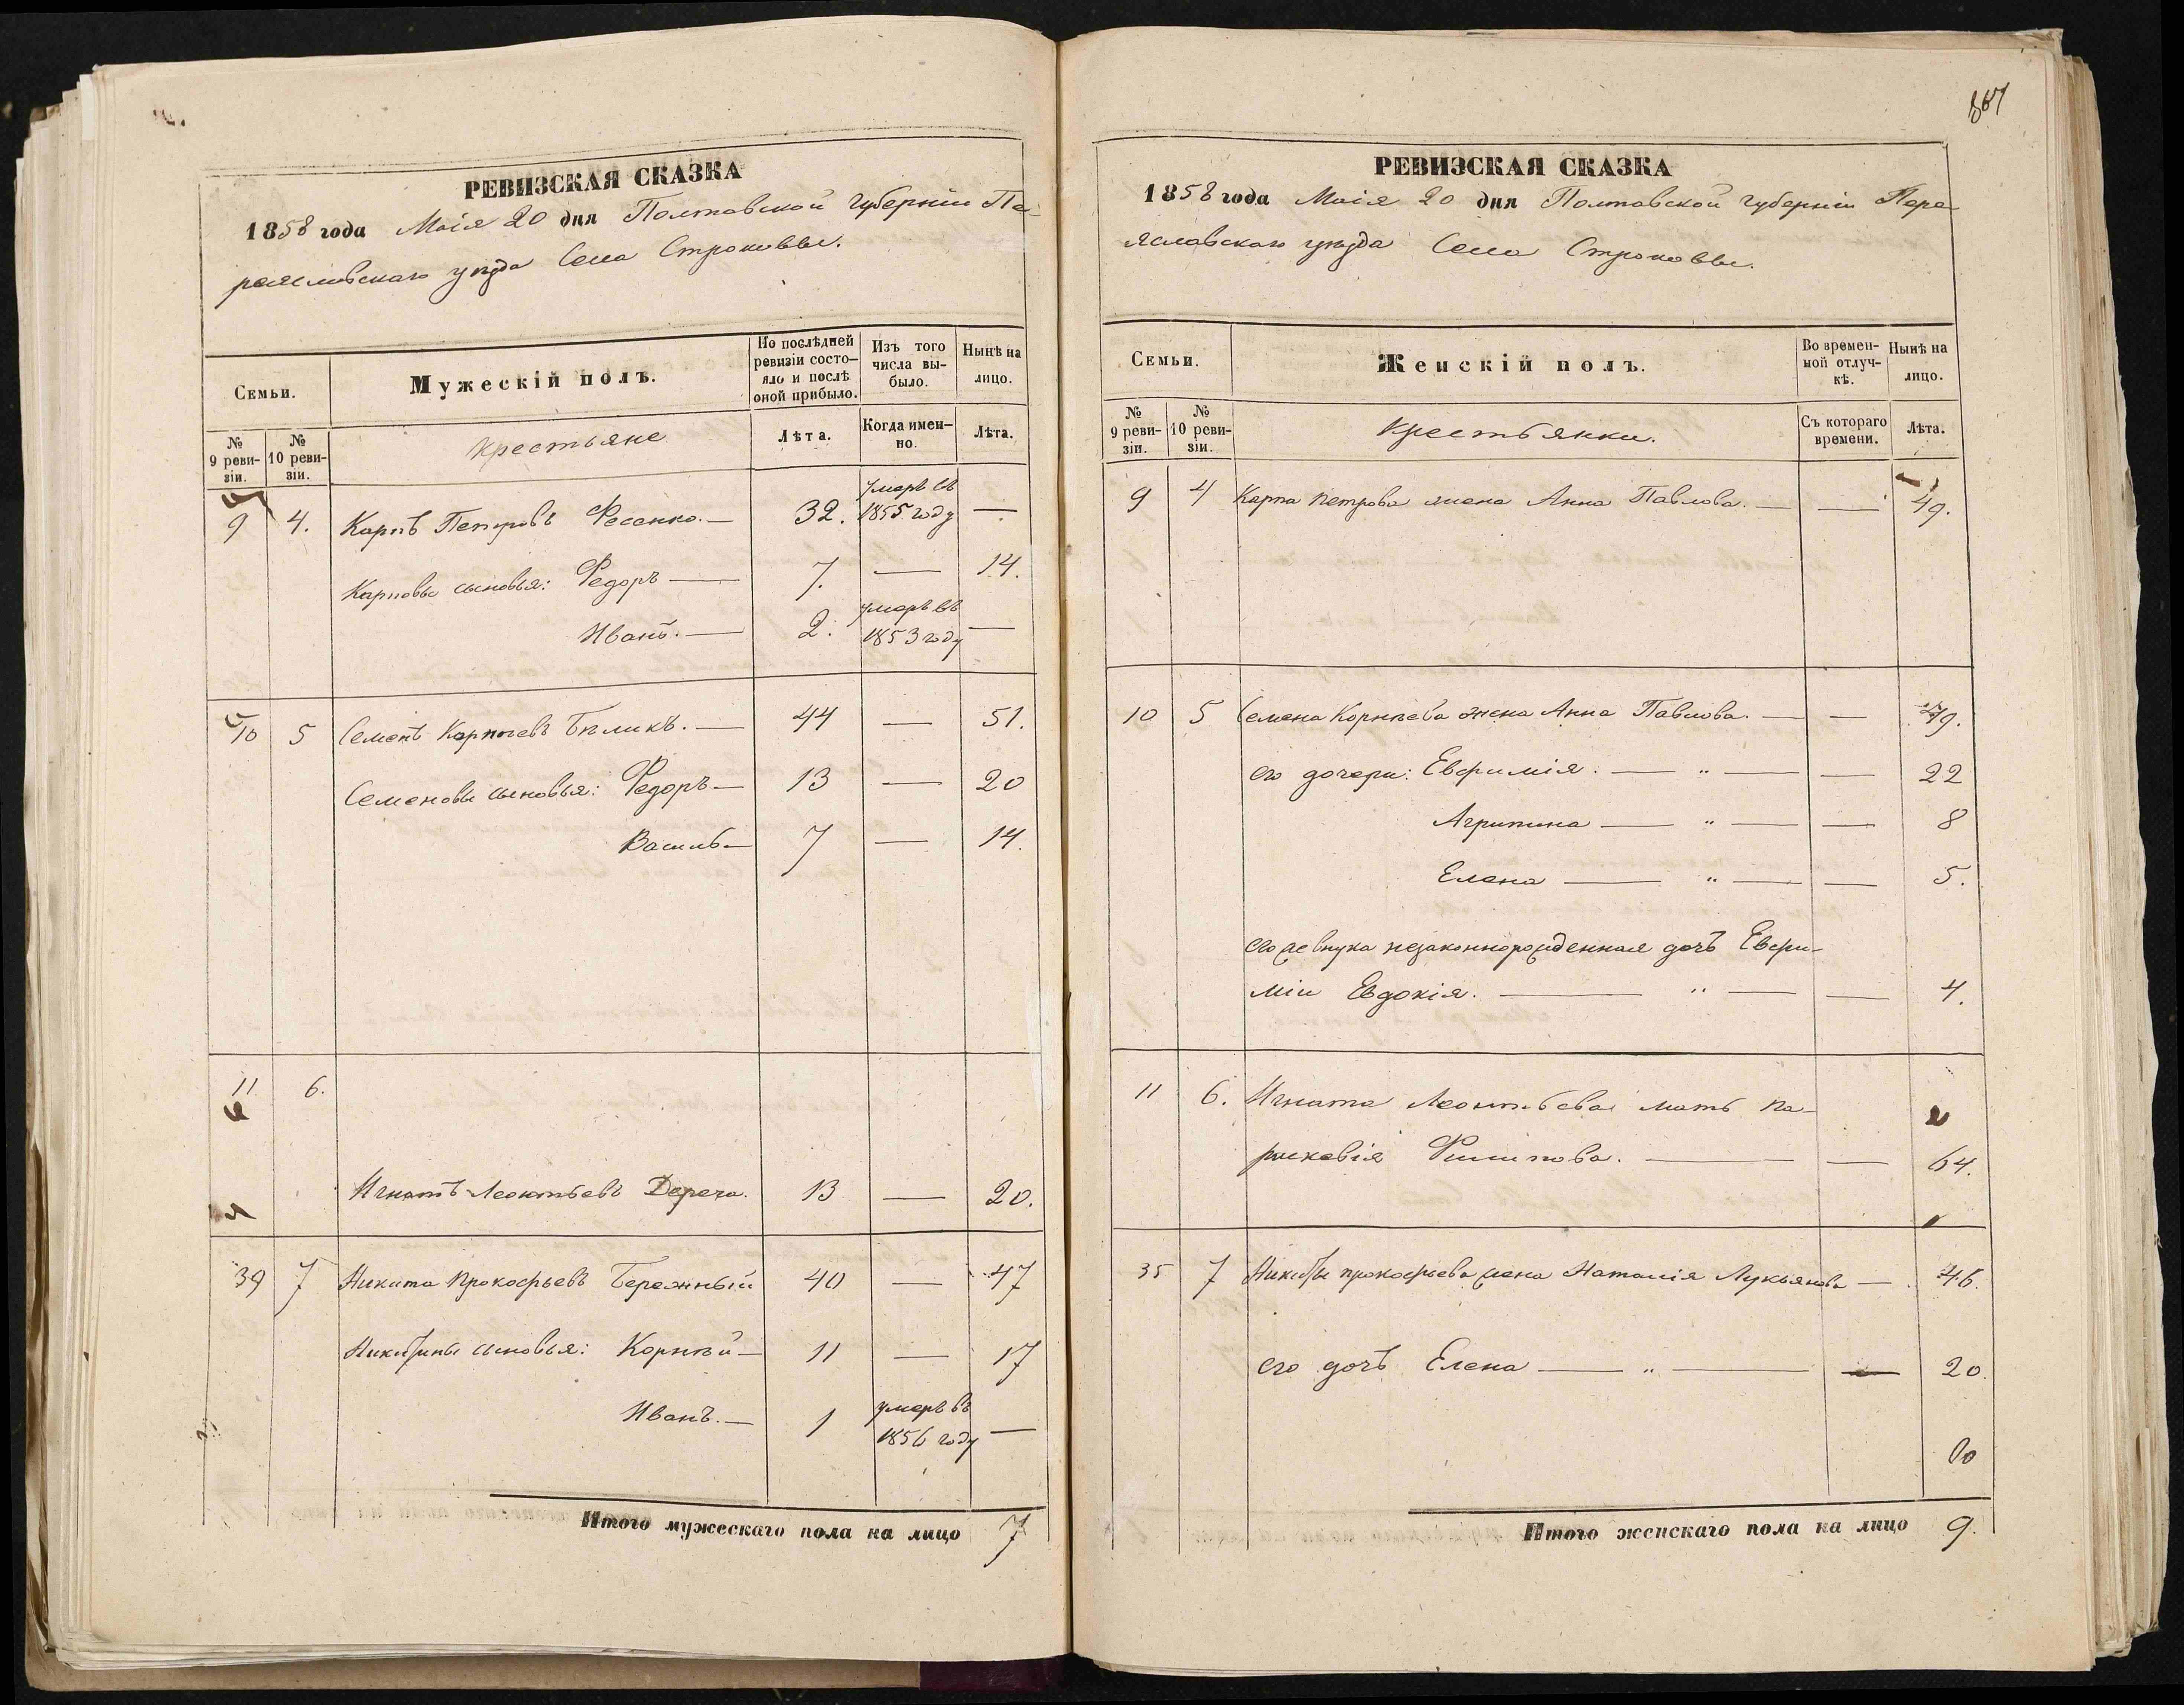 РЕВИЗСКАЯ СКАЗКА
1858 года Маія 20 дня Полтавской губерніи Пе-
реяславскаго уѣзда Села Строковы.
Семьи.
Мужескій полъ.
По послѣдней ревизіи состо-яло и послѣ оной прибыло.
Изъ того числа вы-было.
Нынѣ на лицо.
№ 9 реви-зіи.
№ 10 реви-зіи.
Крестьяне
Лѣта.
Когда имен-но.
Лѣта.
9 4. Карпъ Петровъ Фесенко. — 32. умеръ въ 1855 году —
Карповы сыновья: Федоръ — 7. — 14.
Иванъ. — 2. умеръ въ 1853 году —
10 5 Семенъ Корнѣевъ Бѣликъ. — 44 — 51.
Семеновы сыновья: Федоръ — 13 — 20
Василь — 7 — 14.
11 6.
Игнатъ Леонтьевъ 13 — 20.
39 7 Никита Прокофьевъ Бережный 40 — 47
Никитины сыновья: Корнѣй — 11 — 17
Иванъ. — 1 умеръ въ 1856 году —
Итого мужескаго пола на лицо 7
867
РЕВИЗСКАЯ СКАЗКА
1858 года Маія 20 дня Полтавской губерніи Пере-
яславскаго уѣзда Села Строковы.
Семьи.
Женскій полъ.
Во времен-ной отлуч-кѣ.
Нынѣ на лицо.
№ 9 реви-зіи.
№ 10 реви-зіи.
Крестьянки.
Съ котораго времени.
Лѣта.
9 4 Карпа Петрова жена Анна Павлова. — — 49.
10 5 Семена Корнѣева жена Анна Павлова. — — 49.
его дочери: Евфимія. — " — — 22
Агрипина — " — — 8
Елена — " — — 5.
его же внука незаконнорожденная дочь Евфи-
міи Евдокія. — " — — 4.
11 6. Игната Леонтьева мать Па-
раскевія Филипова. — — 64.
35 7 Никиты Прокофьева жена Наталія Лукьянова — 46.
его дочь Елена — " — — 20.
Итого женскаго пола на лицо 9.